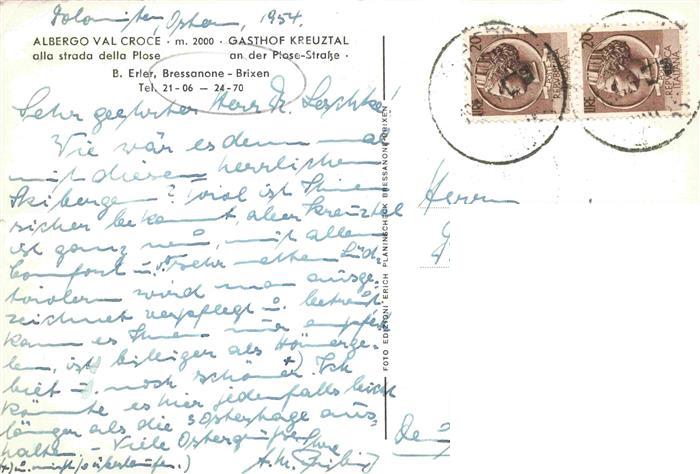 Dolomiten, Ostern, 1954.
ALBERGO VAL CROCE · m. 2000 · GASTHOF KREUZTAL
alla strada della Plose an der Plose-Straße ·
B. Erler, Bressanone - Brixen
Tel. 21-06 — 24-70
Sehr geehrter Herr
Wie wär es denn mal
mit diesen herrlichen
Skibergen? Tirol ist Ihnen
sicher bekannt, aber Kreuztal
ist ganz neu, mit allem
Comfort u. sehr netten Süd-
tirolern wird man ausge-
zeichnet verpflegt u. betreut
kann es Ihnen nur empfeh-
len, ist billiger als
u. noch schöner +) Ich
könnte es hier jedenfalls leicht
länger als die 3 Ostertage aus-
halten. - Viele Ostergrüße Ihre
+) u. nicht so überlaufen.)
FOTO EDIZIONI ERICH PLANINSCHECK BRESSANONE-BRIXEN
Herrn
20
LIRE
REPUBBLICA
ITALIANA
20
LIRE
REPUBBLICA
ITALIANA